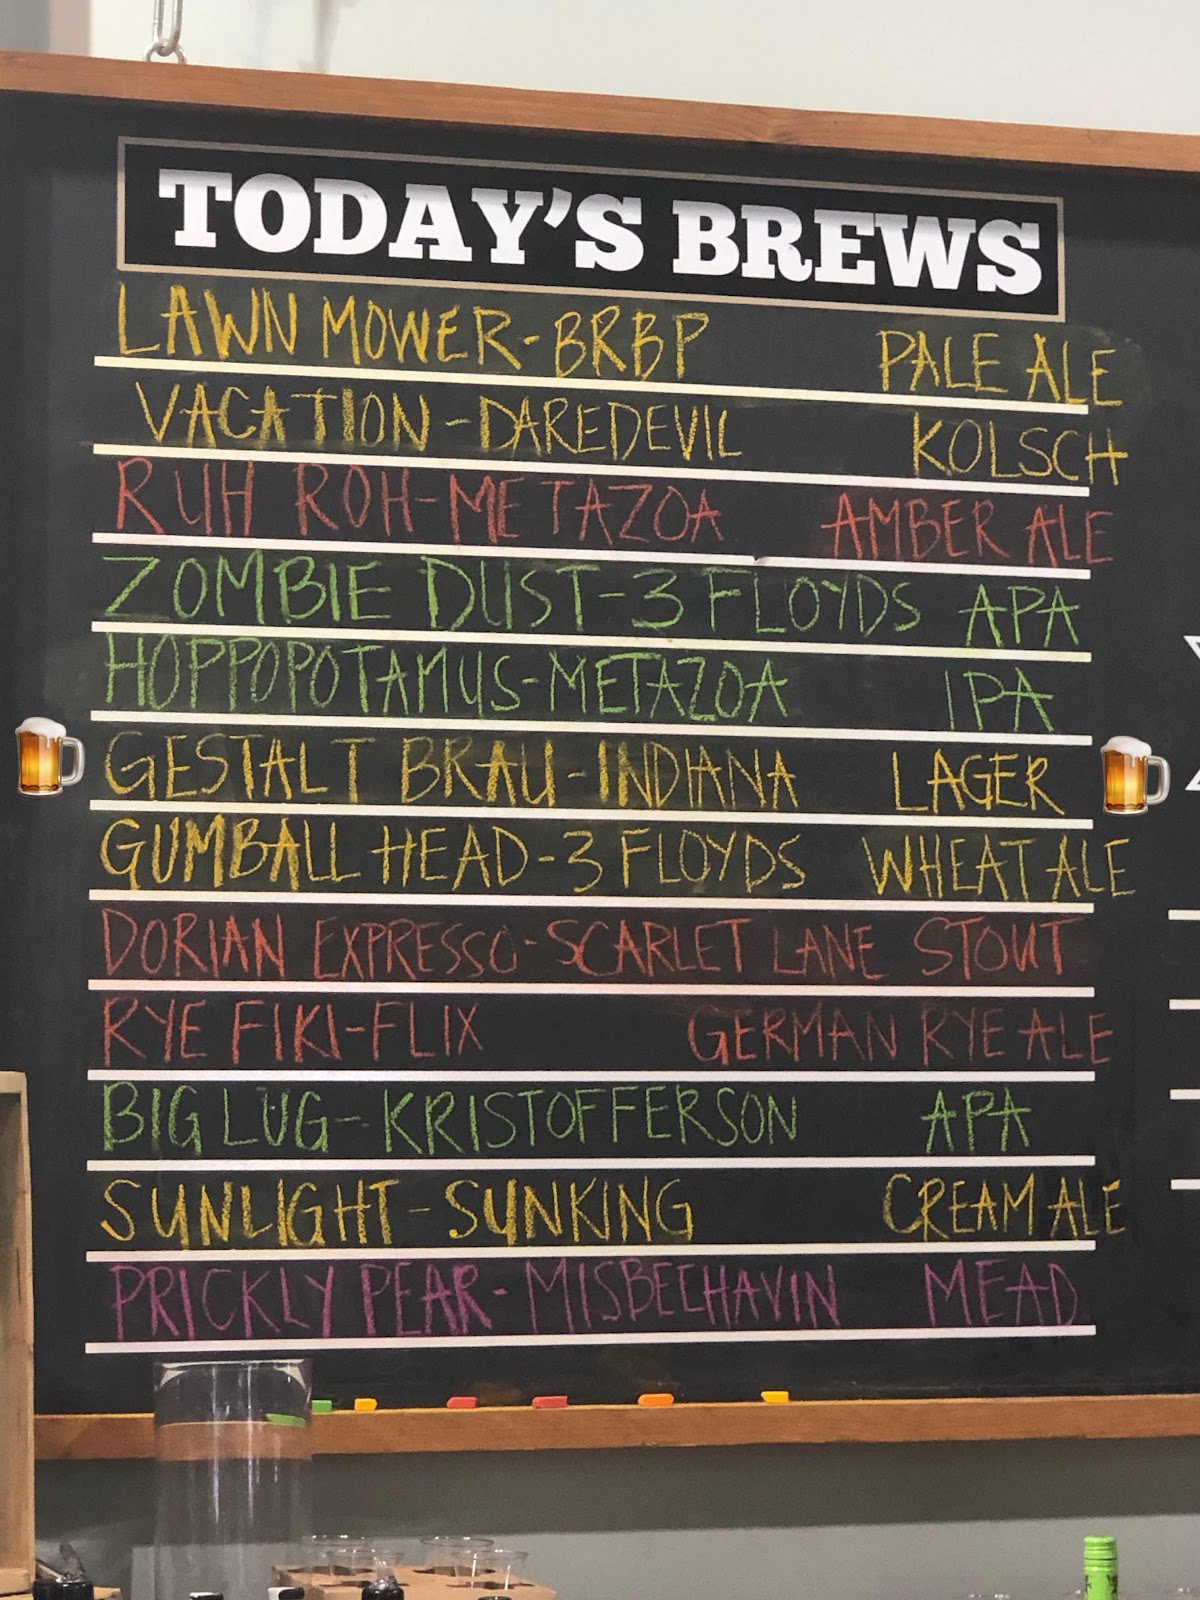 TODAY'S BREWS
LAWN MOWER-BRBP PALE ALE
VACATION-DAREDEVIL KOLSCH
RUH ROH-METAZOA AMBER ALE
ZOMBIE DUST-3 FLOYDS APA
HOPPOPOTAMUS-METAZOA IPA
GESTALT BRAU-INDIANA LAGER
GUMBALL HEAD-3 FLOYDS WHEAT ALE
DORIAN EXPRESSO-SCARLET LANE STOUT
RYE FIKI-FLIX GERMAN RYE ALE
BIG LUG-KRISTOFFERSON APA
SUNLIGHT-SUNKING CREAM ALE
PRICKLY PEAR-MISBEEHAVIN MEAD